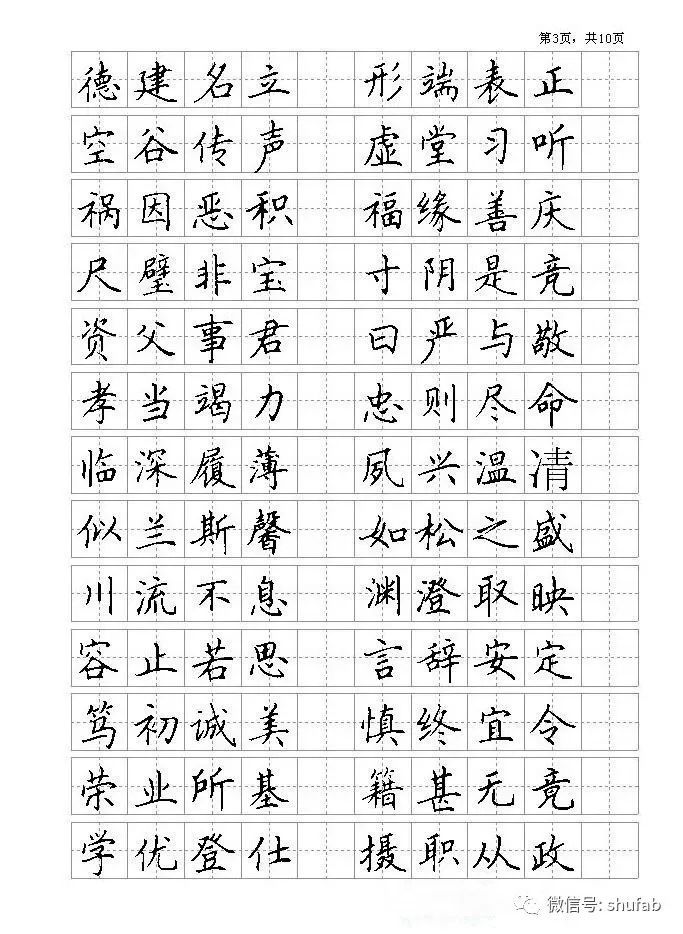 第3页，共10页
德建名立 形端表正
空谷传声 虚堂习听
祸因恶积 福缘善庆
尺璧非宝 寸阴是竞
资父事君 曰严与敬
孝当竭力 忠则尽命
临深履薄 夙兴温凊
似兰斯馨 如松之盛
川流不息 渊澄取映
容止若思 言辞安定
笃初诚美 慎终宜令
荣业所基 籍甚无竟
学优登仕 摄职从政
微信号: shufab